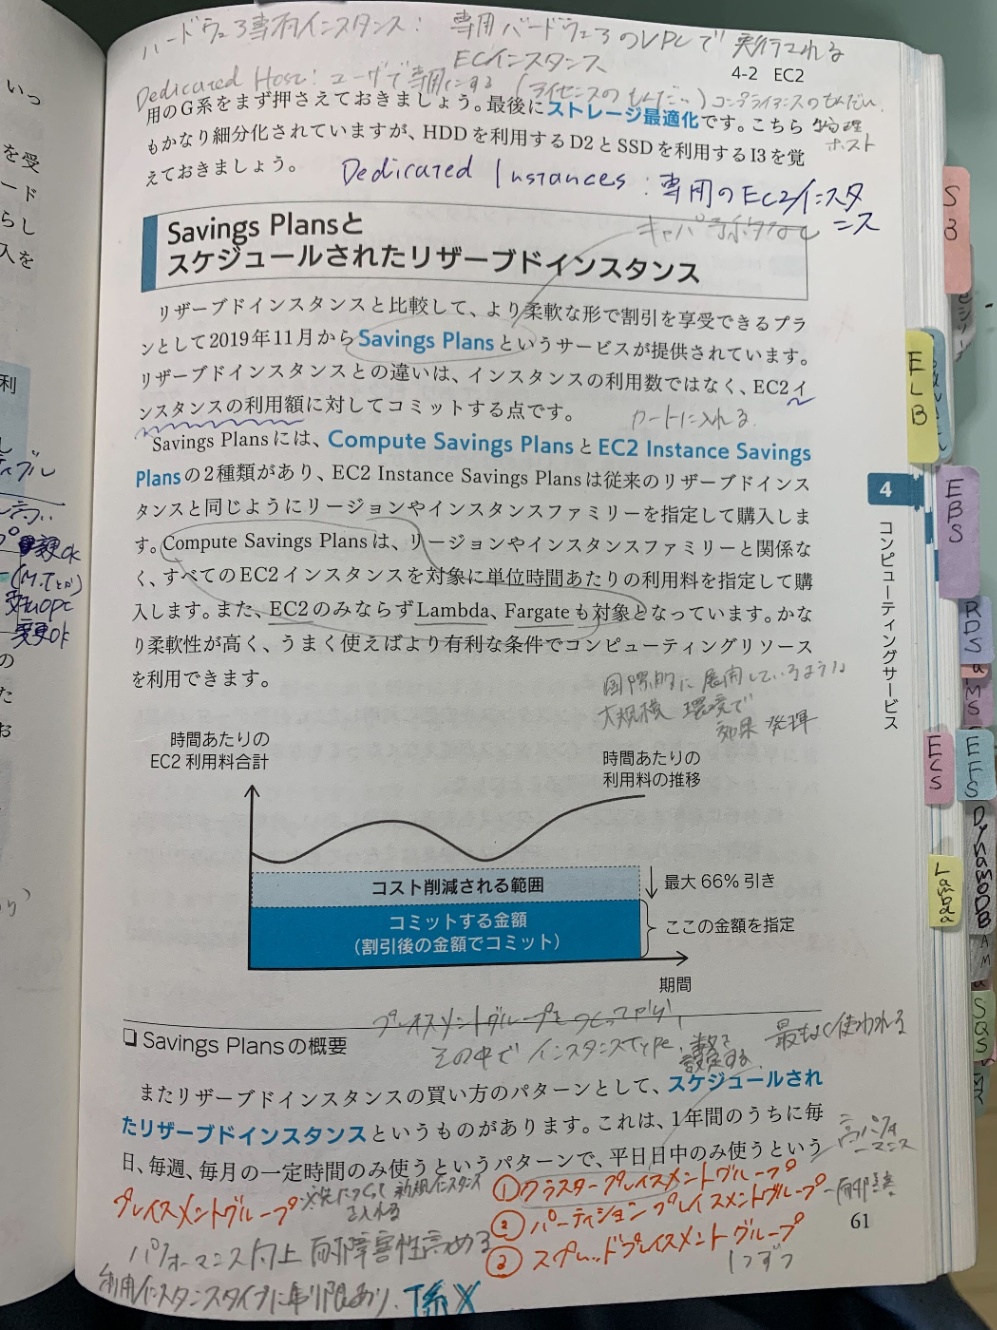 ハードウェア専有インスタンス: 専用ハードウェアのVPCで実行される
ECインスタンス
4-2 EC2
Dedicated Host: ユーザで専用にする (ライセンスのもんだい) コンプライアンスのもんだい
物理
ホスト
用のG系をまず押さえておきましょう。最後にストレージ最適化です。こちら
もかなり細分化されていますが、HDDを利用するD2とSSDを利用するI3を覚
えておきましょう。
Dedicated Instances: 専用のEC2インスタ
ンス
キャパ予約なし
Savings Plansと
スケジュールされたリザーブドインスタンス
リザーブドインスタンスと比較して、より柔軟な形で割引を享受できるプラ
ンとして2019年11月からSavings Plansというサービスが提供されています。
リザーブドインスタンスとの違いは、インスタンスの利用数ではなく、EC2イ
ンスタンスの利用額に対してコミットする点です。
カートに入れる
Savings Plansには、Compute Savings PlansとEC2 Instance Savings
Plansの2種類があり、EC2 Instance Savings Plansは従来のリザーブドインス
タンスと同じようにリージョンやインスタンスファミリーを指定して購入しま
す。Compute Savings Plansは、リージョンやインスタンスファミリーと関係な
く、すべてのEC2インスタンスを対象に単位時間あたりの利用料を指定して購
入します。また、EC2のみならずLambda、Fargateも対象となっています。かな
り柔軟性が高く、うまく使えばより有利な条件でコンピューティングリソース
を利用できます。
国際的に展開しているような
大規模 環境で
効果 発揮
時間あたりの
EC2利用料合計
時間あたりの
利用料の推移
コスト削減される範囲
最大66%引き
コミットする金額
(割引後の金額でコミット)
ここの金額を指定
期間
❏ Savings Plansの概要
プレイスメントグループをつくってやり、
その中でインスタンスtype、数を
設定する
最もよく使われる
またリザーブドインスタンスの買い方のパターンとして、スケジュールされ
たリザーブドインスタンスというものがあります。これは、1年間のうちに毎
日、毎週、毎月の一定時間のみ使うというパターンで、平日日中のみ使うという
プレイスメントグループ
①クラスタープレイスメントグループ
②パーティションプレイスメントグループ
③スプレッドプレイスメントグループ
1つずつ
パフォーマンス向上 耐障害性高める
利用インスタンスタイプに制限あり、T系X
61
4
コンピューティングサービス
S3
ELB
EBS
RDS
ECS
EFS
DynamoDB
Lambda
SQS
いっ
を受
ード
らし
入を
利